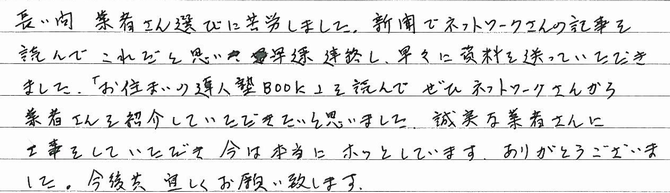 長い間 業者さん選びに苦労しました。新聞でネットワークさんの記事を
読んで これだと思い 早速 連絡し、早々に資料を送っていただき
ました。「お住まいの達人塾BOOK」を読んで ぜひ ネットワークさんから
業者さんを紹介していただきたいと思いました。誠実な業者さんに
工事をしていただき 今は本当に ホッとしています。ありがとうございま
した。今後共 宜しくお願い致します。